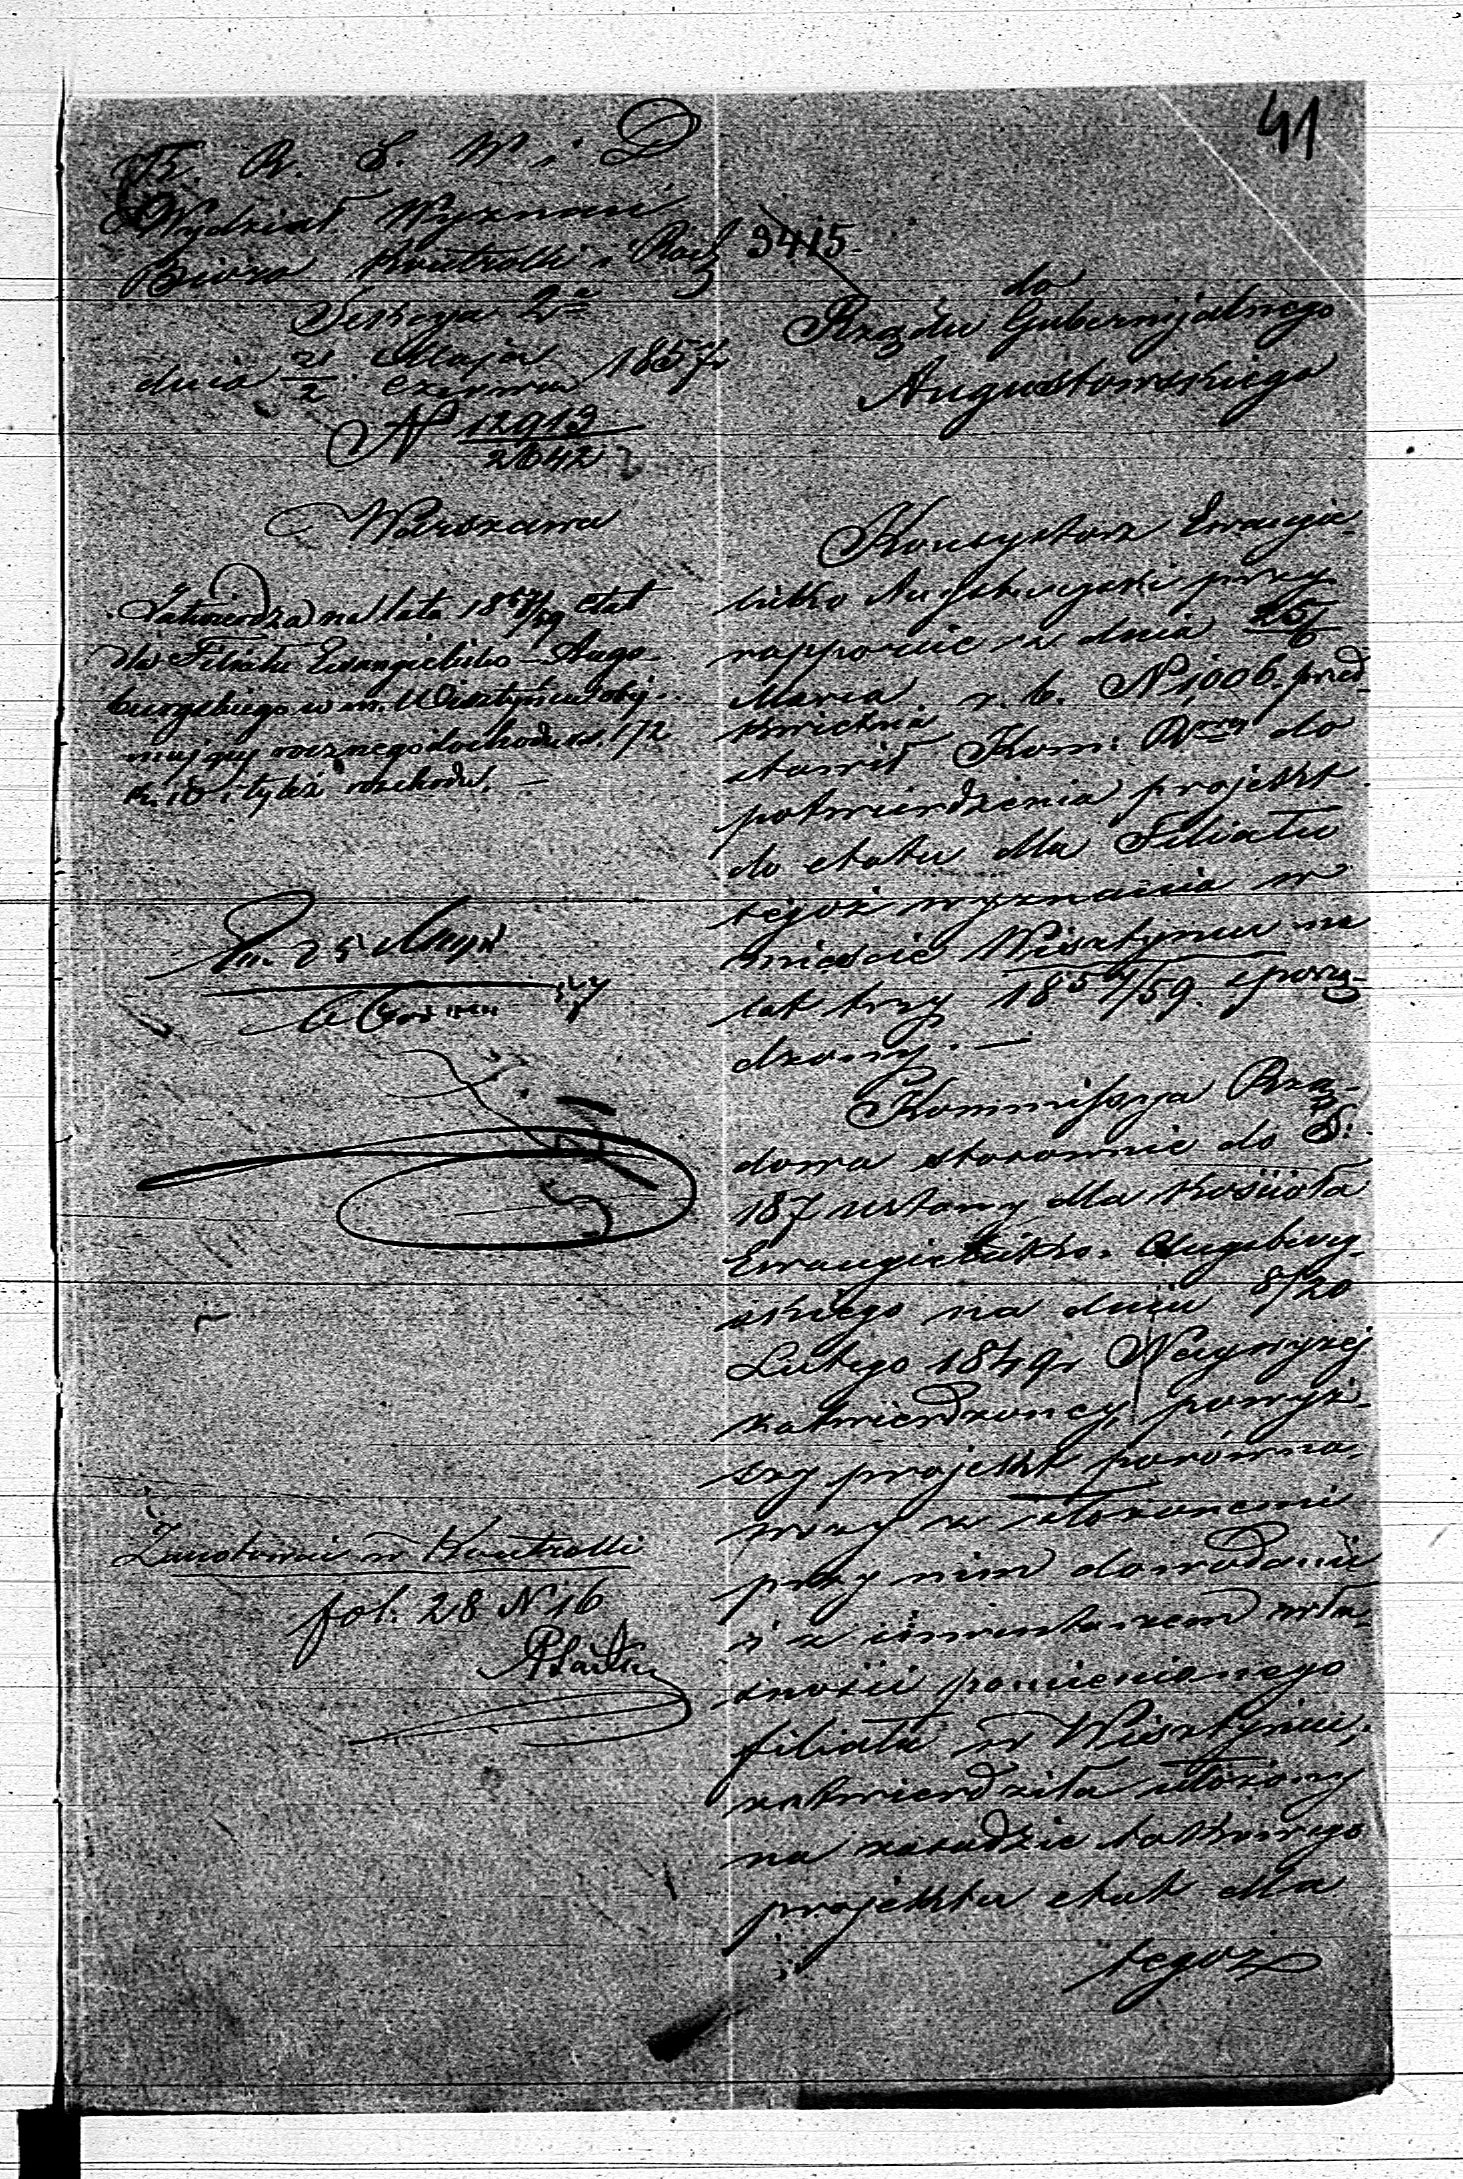 41
K. R. S. W i D
Wydział Wyznań
Biuro Kontrolli i Rach
Sekcya 2a
dnia 21/2 Maja/Czerwca 1857
N 12913/2642
Warszawa
Zatwierdza na lata 1857/59 etat
dla Filiału Ewangielicko-Augs-
burgskiego w m. Wisztyńcu obej-
mujący rocznego dochodu rs. 172
k. 10 i tyleż rozchodu. —
25 Maja
57
Zanotowano w Kontrolli
fol: 28 N 16
9415
do
Rządu Gubernijalnego
Augustowskiego
Konsystorz Ewangie-
licko Augsburgski przy
rapporcie z dnia 25/6
Marca/Kwietnia r. b. N 1,006. przed-
stawił Kom: Rząd. do
potwierdzenia projekt
do etatu dla Filiału
tegoż wyznania w
mieście Wisztyńcu na
lat trzy 1857/59. sporzą-
dzony. —
Kommissya Rzą-
dowa stosownie do §.
187 ustawy dla Kościoła
Ewangielicko. Augsburg-
skiego na dniu 8/20
Lutego 1849 r Najwyżej
zatwierdzonej, powyż-
szy projekt porówna-
wszy z złożonemi
przy nim dowodami
i z inwentarzem wła-
sności pomienionego
filiału w Wisztyńcu,
zatwierdziła ułożony
na zasadzie takowego
projektu etat dla
tegoż